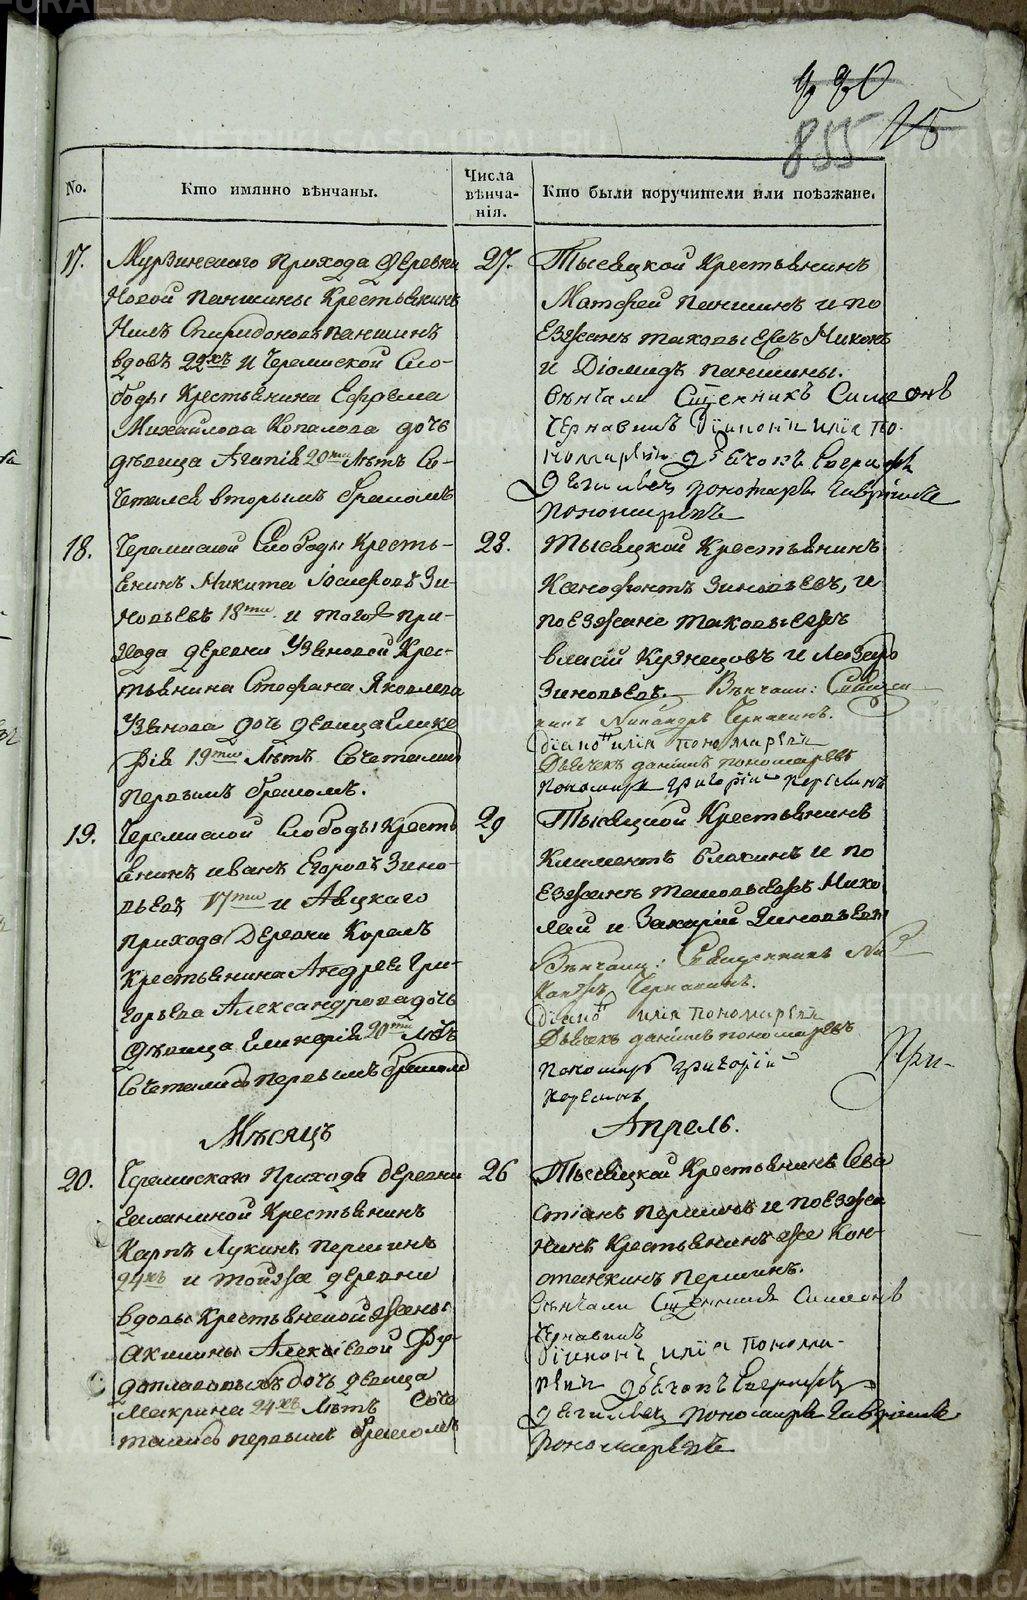 855
No.
Кто имянно вѣнчаны.
Числа вѣнча-нія.
Кто были поручители или поѣзжане.
17.
Мурзинскаго Прихода деревни
Новой паншины Крестьянинъ
Нилъ Спиридоновъ паншинъ
вдовъ 22хъ и Черемиской Сло-
боды Крестьянина Ефрема
Михайлова Копалова дочь
дѣвица Агапія 20ти Лѣтъ Со-
четался вторымъ бракомъ
27.
Тысяцкой Крестьянинъ
Матфей паншинъ и по
Езжанъ таковыежъ Никонъ
и Діомидъ паншины.
Вѣнчали Сщенникъ Симеонъ
Чернавинъ Діяконъ илія по-
номаревъ
пономарь Гавріилъ
пономаревъ
18.
Черемиской Слободы Кресть-
янинъ Никита Іосифовъ Зи-
новьевъ 18ти и тогожъ при-
хода деревни Узяновой Крес-
тьянина Стефана Яковлева
Узянова дочь девица Глике
рія 19ти Лѣтъ Сочетались
первымъ бракомъ.
28.
Тысяцкой Крестьянинъ
Ксенофонтъ Зиновьевъ, и
поѣзжане таковыежъ
власій Кузнецовъ и Лазарь
Зиновьевъ. Вѣнчали: Священ-
никъ Никандръ Чернавинъ.
Діаконъ илія пономаревъ
Дьячекъ даніилъ пономаревъ
пономарь григорій
19.
Черемиской Слободы Кресть
янинъ иванъ Егоровъ Зино-
вьевъ 17ти и Аяцкаго
прихода деревни Корелъ
Крестьянина Андрея Гри-
горьева Александрова дочь
дѣвица Гликерія 20ти Лѣтъ
Сочетались первымъ бракомъ
29
Тысяцкой Крестьянинъ
Климентъ Блохинъ и по
Езжанъ таковыежъ Нико
лай и Захарій Зиновьевы
Вѣнчали: Священникъ Ни
кандръ Чернавинъ.
Діаконъ илія пономаревъ
Дьячекъ даніилъ пономаревъ
пономарь григорій
При-
Мѣсяцъ
Апрель.
20.
Черемискаго Прихода деревни
Крестьянинъ
Карпъ Лукинъ першинъ
24хъ и тойжа деревни
вдовы Крестьянской жены
Акилины Алексіевой
дочь девица
Макрина 24хъ Лѣтъ Соче
тались первымъ бракомъ
26
Тысяцкой Крестьянинъ Сева
стіанъ першинъ и поѣзжа
нинъ Крестьянинъ же Кон-
стантинъ першинъ.
Вѣнчали Сщенникъ Симеонъ
Чернавинъ
Діяконъ илія понома-
ревъ
пономарь Гавріилъ
пономаревъ